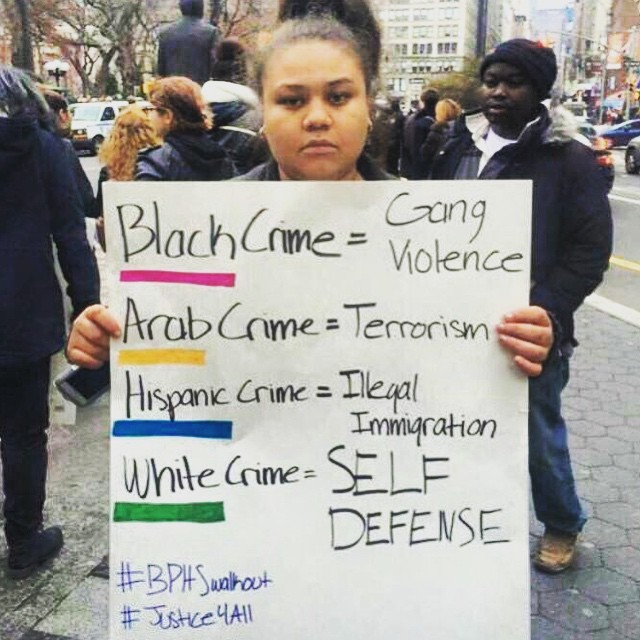 Black Crime = Gang
Violence
Arab Crime = Terrorism
Hispanic Crime = Illegal
Immigration
White Crime = SELF
DEFENSE
#BPHSwalkout
#Justice4All